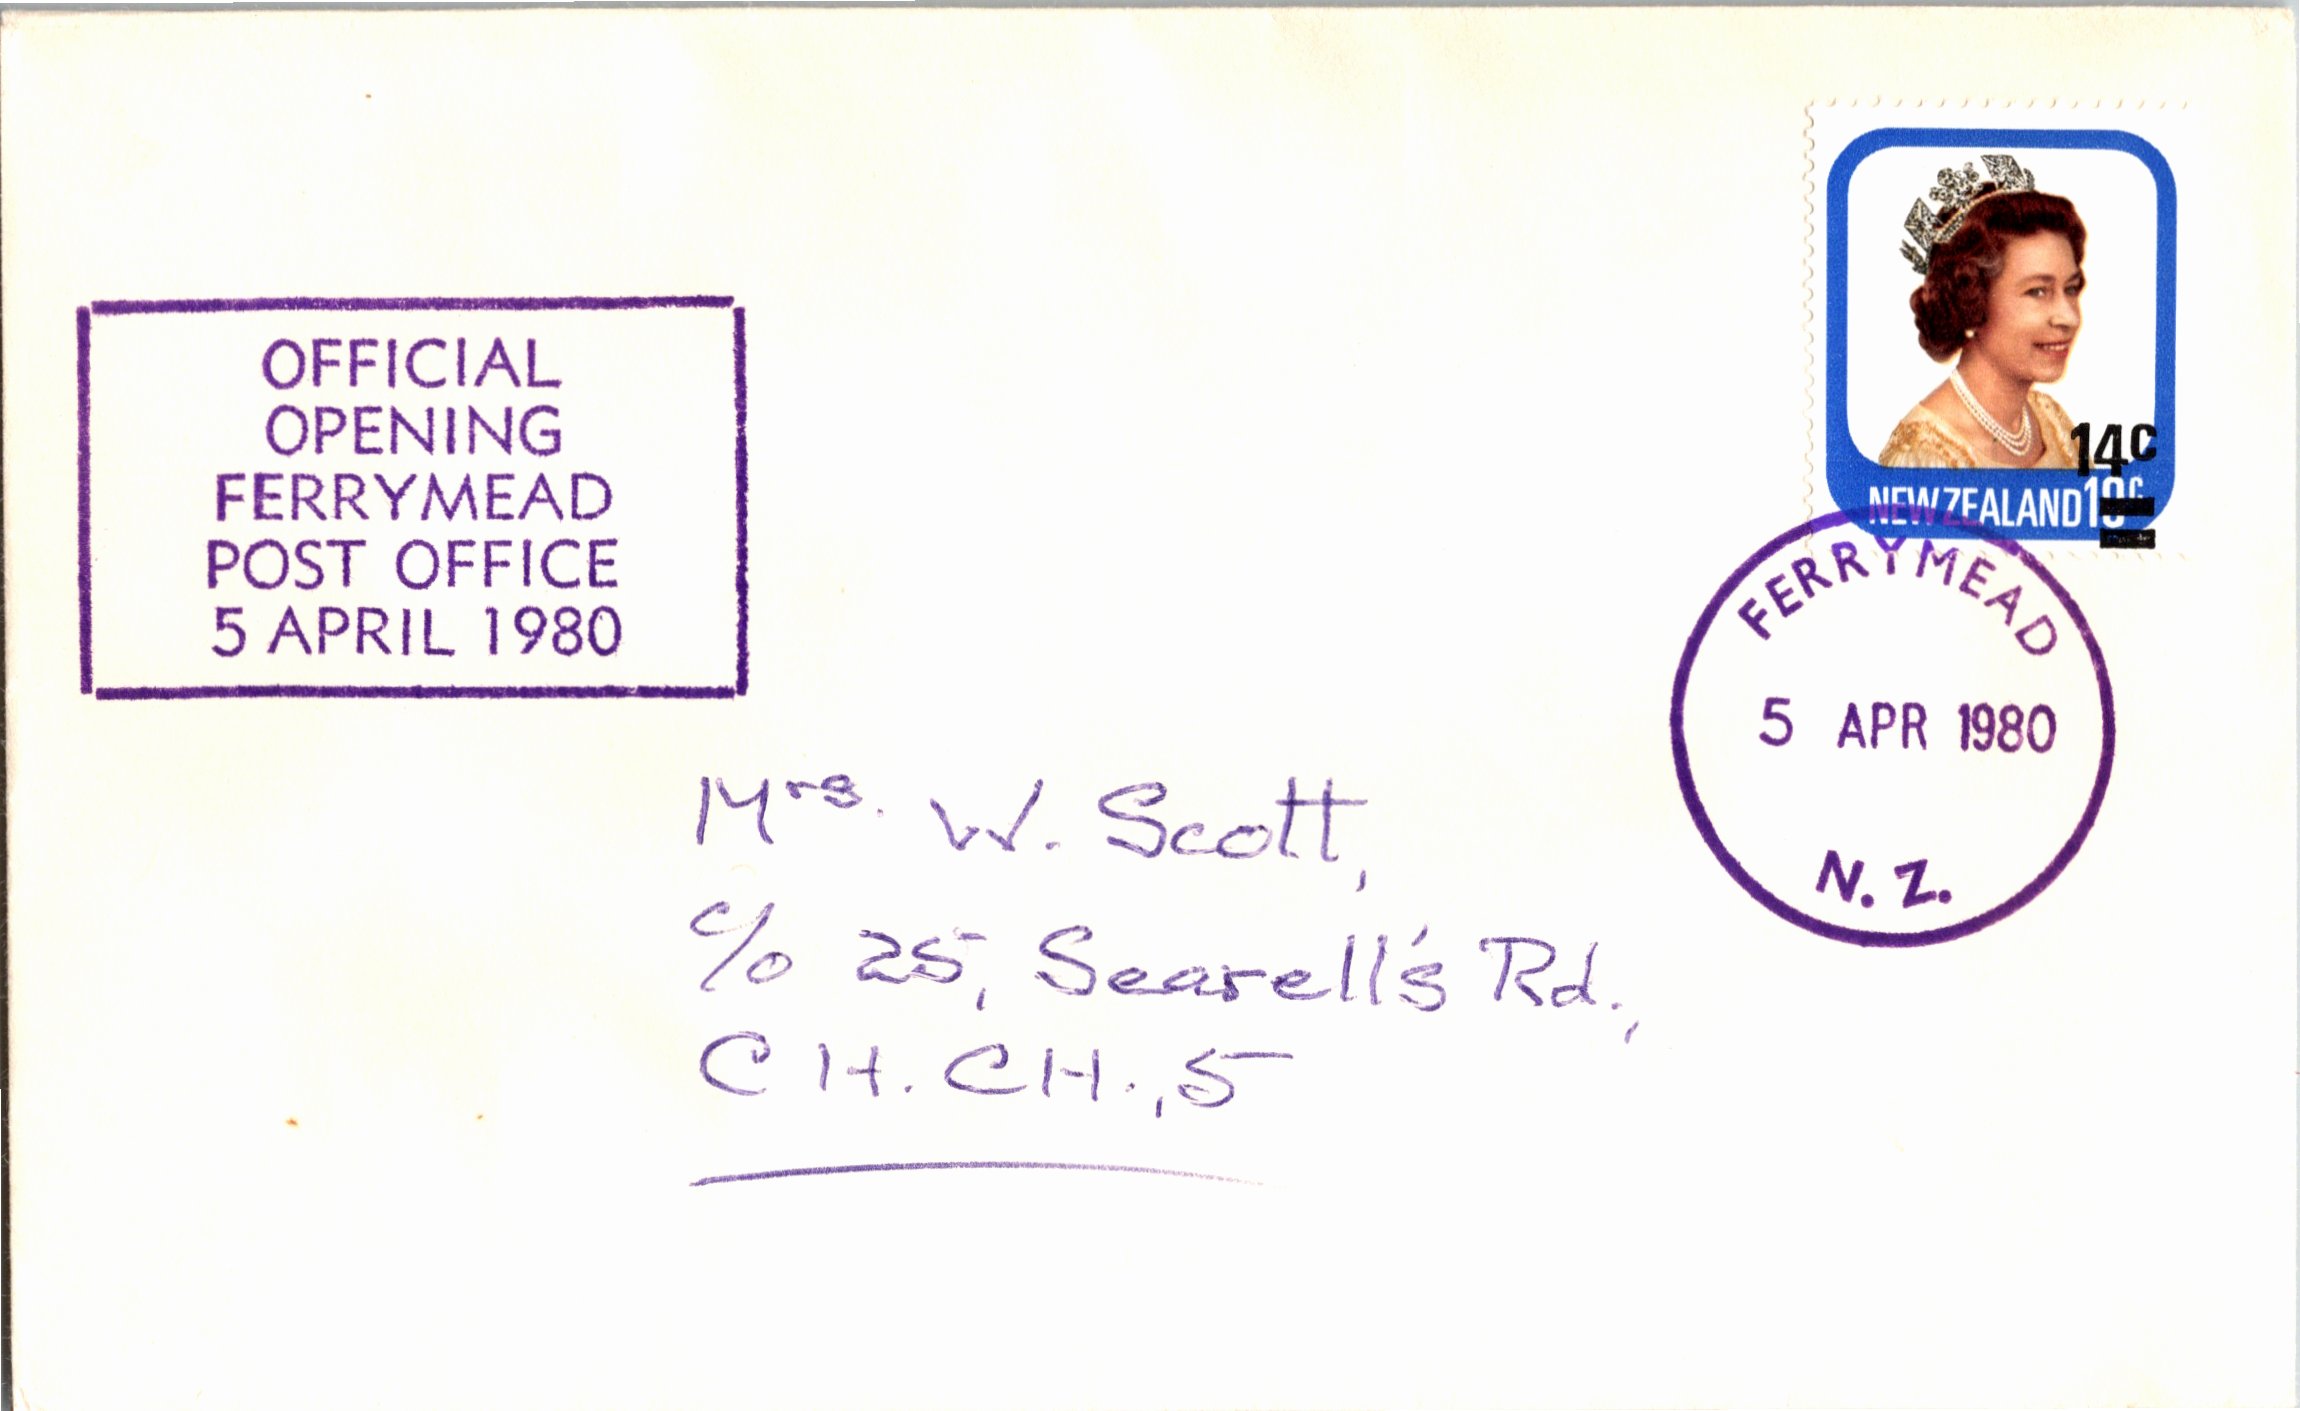 OFFICIAL
OPENING
FERRYMEAD
POST OFFICE
5 APRIL 1980
14c
NEW ZEALAND 10c
FERRYMEAD
5 APR 1980
N.Z.
Mrs. W. Scott,
c/o 25, Searell's Rd.,
CH.CH.,5